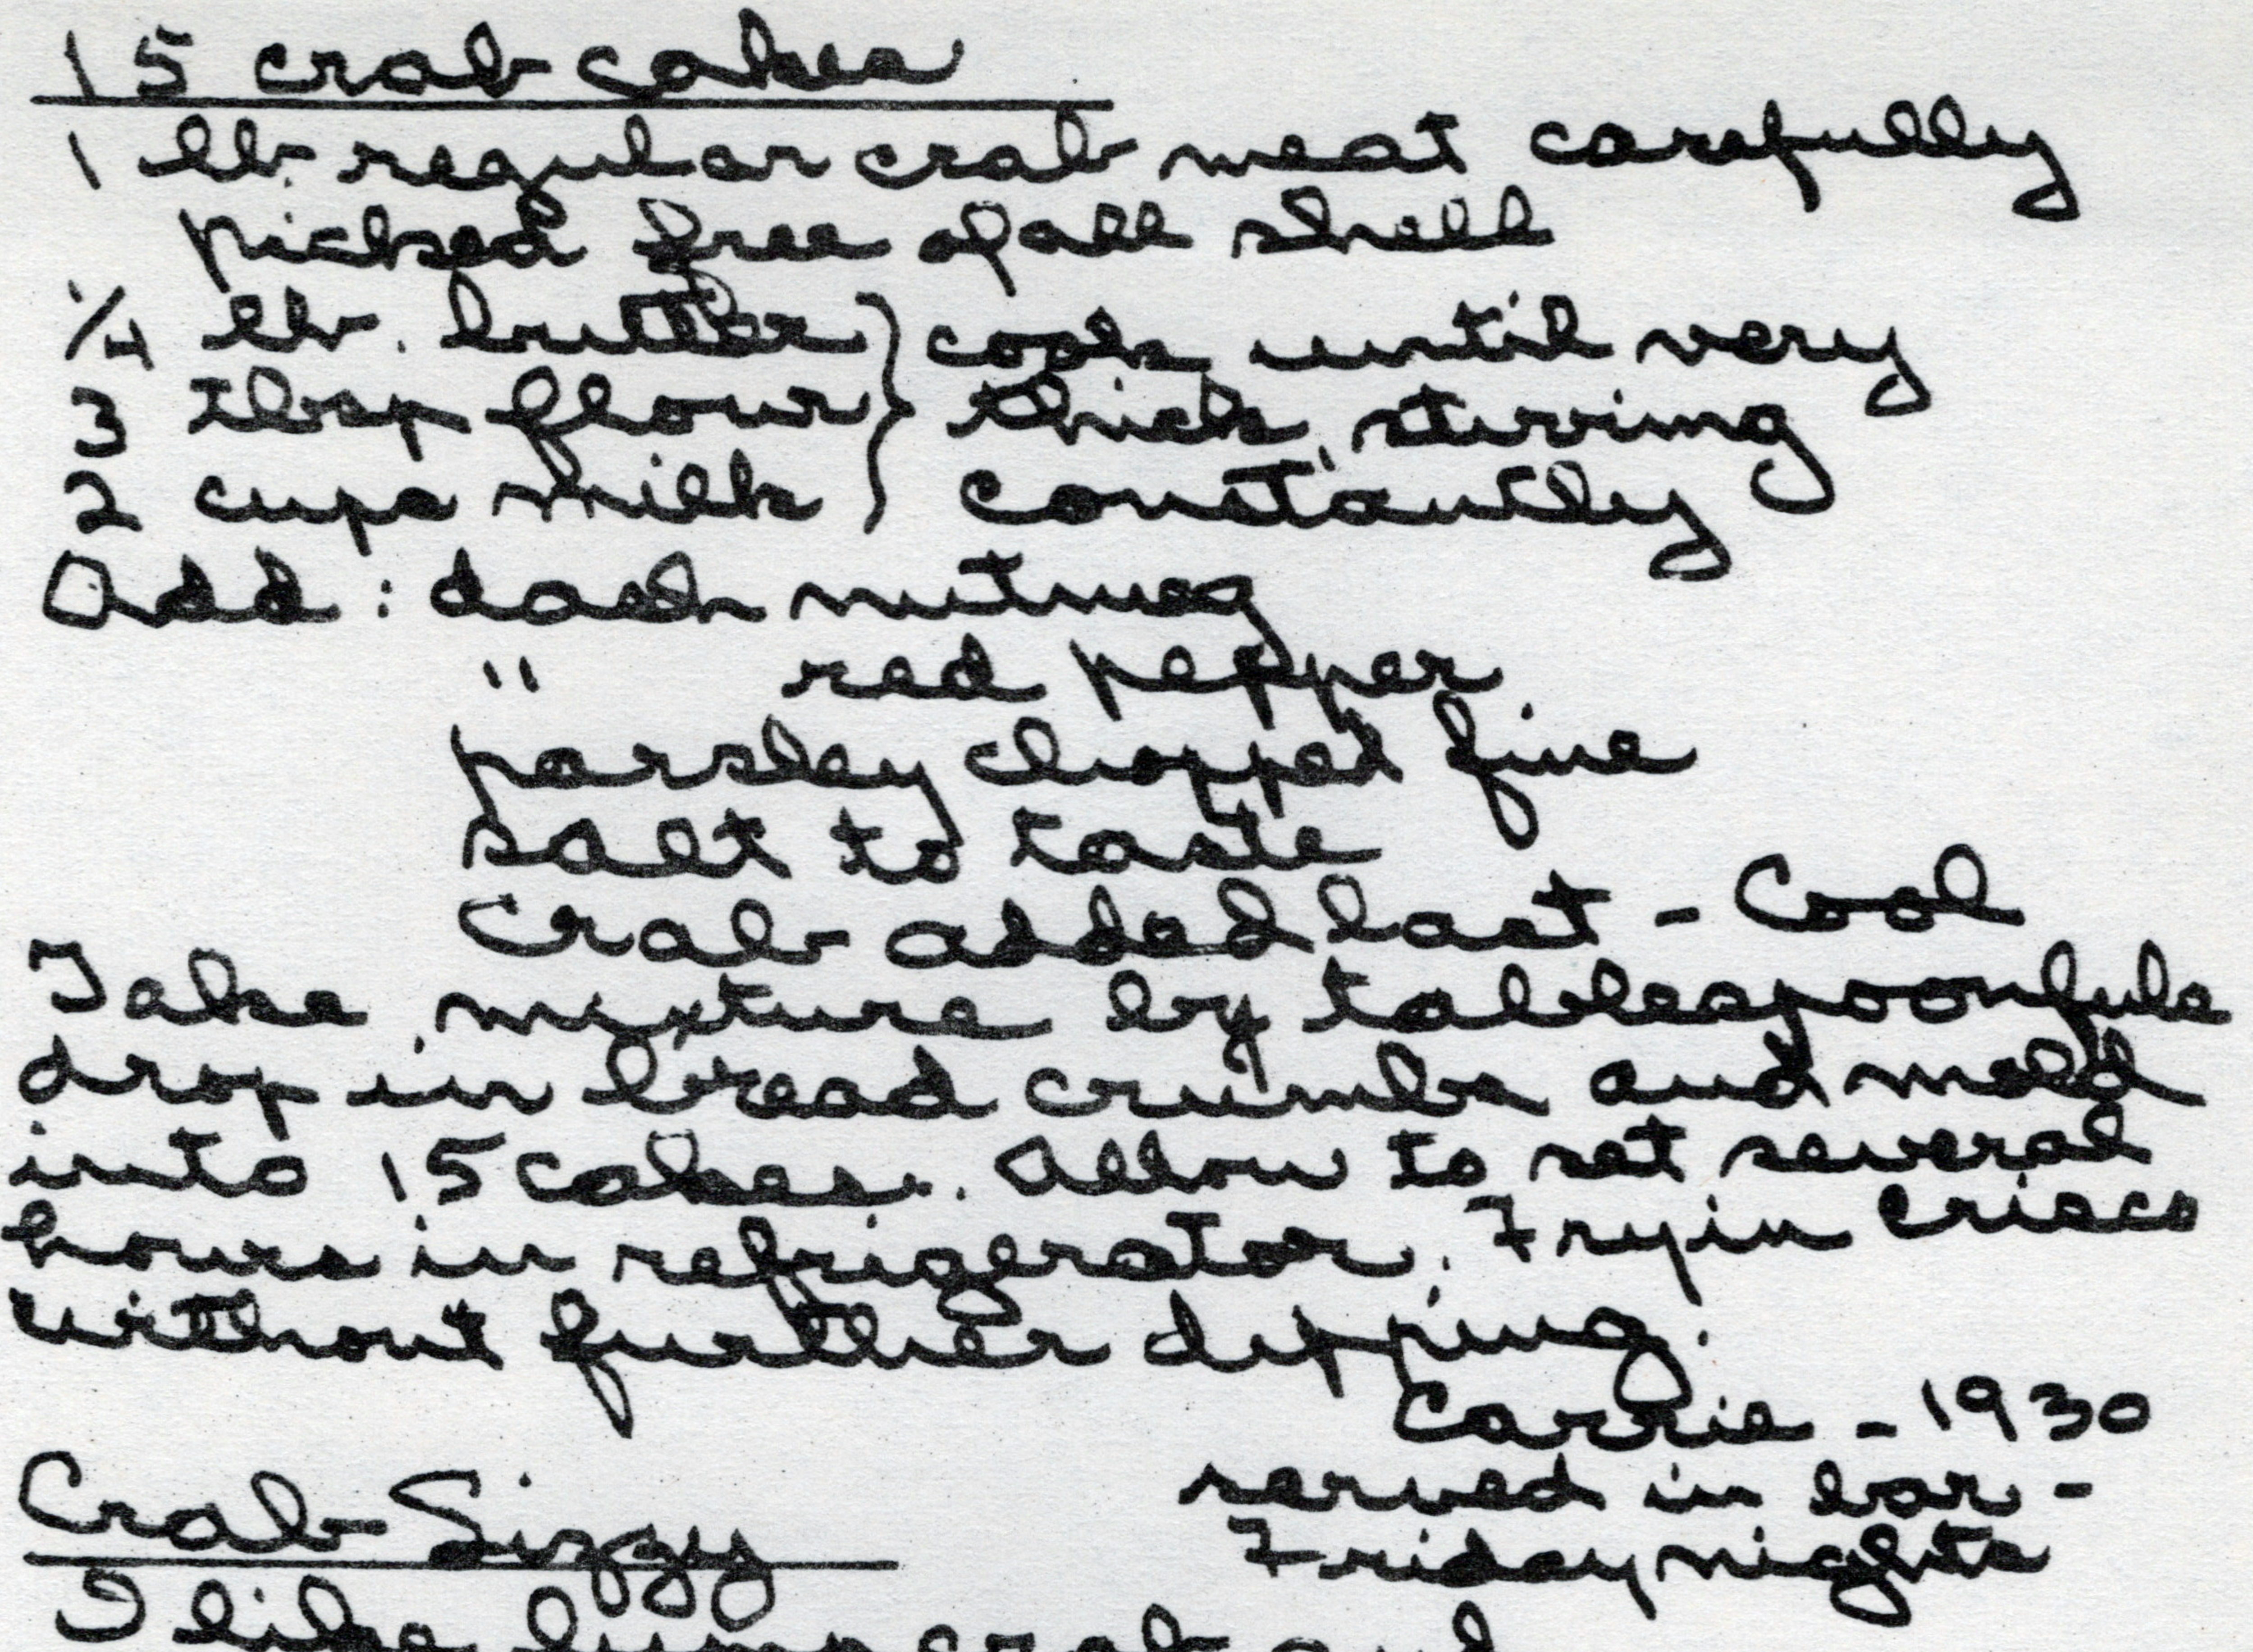 15 crab cakes
1 lb. regular crab meat carefully
picked free of all shell
1/4 lb. butter } cook until very
3 tbsp flour } thick, stirring
2 cups milk } constantly
Add: dash nutmeg
" red pepper
parsley chopped fine
salt to taste
Crab added last - Cool
Take mixture by tablespoonfuls
drop in bread crumbs and mold
into 15 cakes. Allow to set several
hours in refrigerator. Fry in Crisco
without further dipping.
Carrie - 1930
served in bar -
Friday nights
Crab Sizzy
I like lump crab and